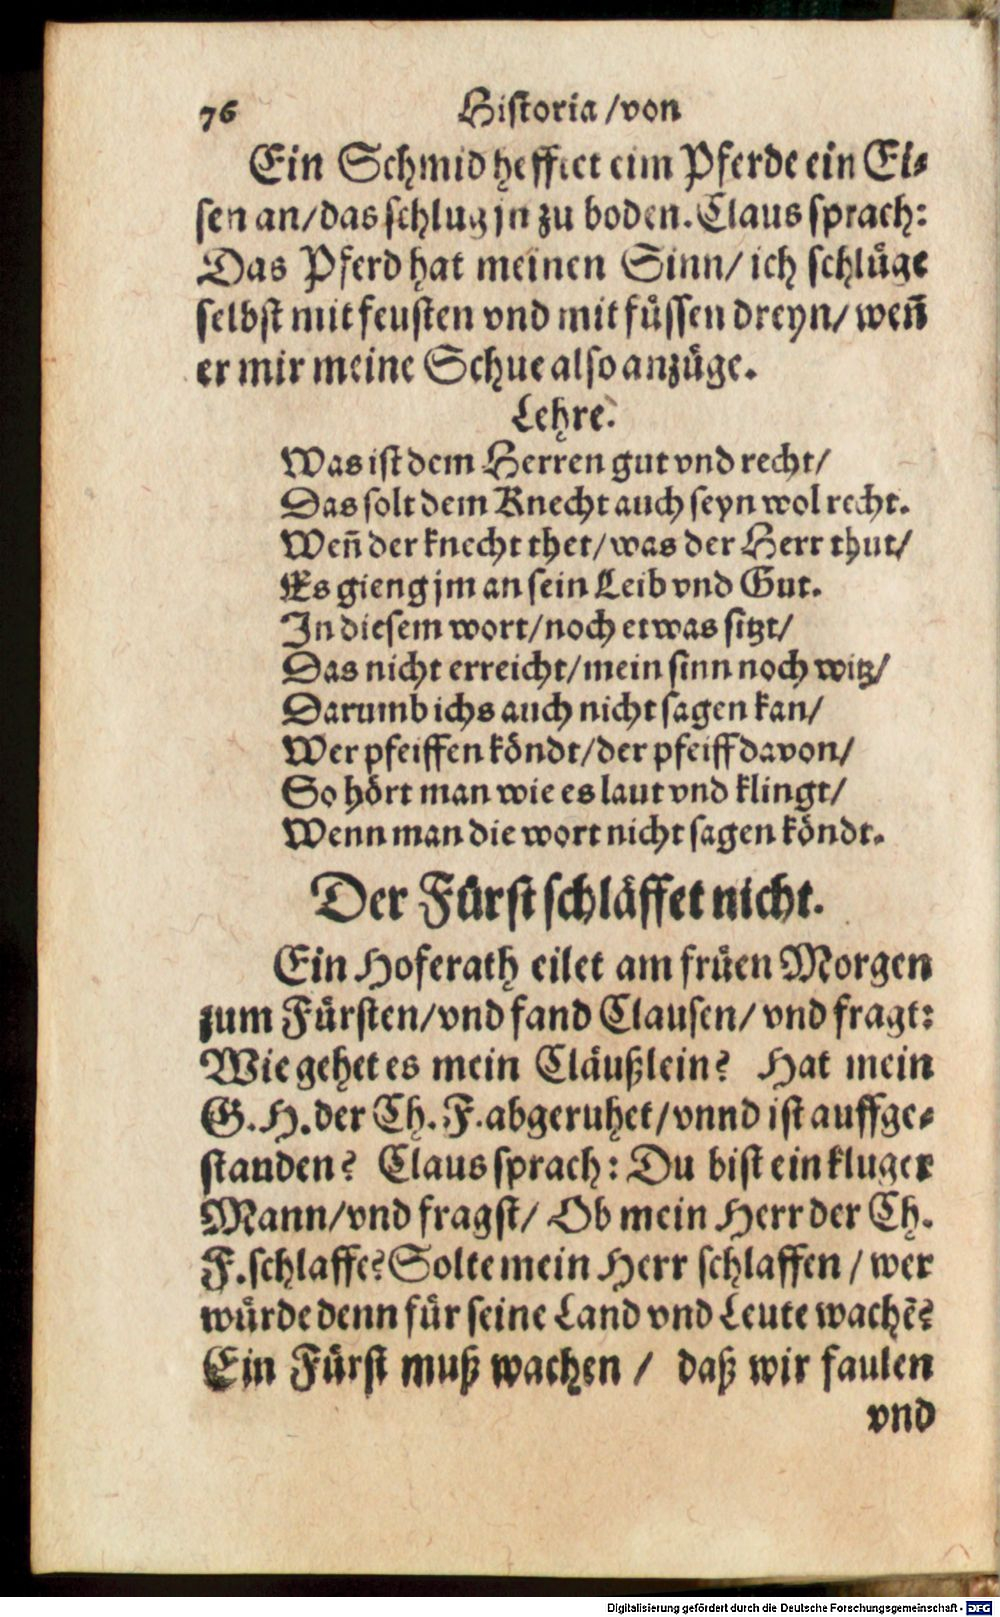 76 Historia /von
Ein Schmid hefftet eim Pferde ein Ei⸗
sen an/das schlug jn zu boden. Claus sprach:
Das Pferd hat meinen Sinn/ ich schlüge
selbst mit feusten vnd mit füssen dreyn/ weñ
er mir meine Schue also anzüge.
Lehre.
Was ist dem Herren gut vnd recht/
Das solt dem Knecht auch seyn wol recht.
Weñ der knecht thet/was der Herr thut/
Es gieng jm an sein Leib vnd Gut.
In diesem wort/noch etwas sitzt/
Das nicht erreicht/mein sinn noch witz/
Darumb ichs auch nicht sagen kan/
Wer pfeiffen köndt/der pfeiff davon/
So hört man wie es laut vnd klingt/
Wenn man die wort nicht sagen köndt.
Der Fürst schläffet nicht.
Ein Hoferath eilet am früen Morgen
zum Fürsten/vnd fand Clausen/ vnd fragt:
Wie gehet es mein Cläußlein? Hat mein
G. H. der Ch. F. abgeruhet/vnnd ist auffge⸗
standen? Claus sprach: Du bist ein kluger
Mann/vnd fragst/ Ob mein Herr der Ch.
F. schlaffe? Solte mein Herr schlaffen / wer
würde denn für seine Land vnd Leute wachẽ?
Ein Fürst muß wachen / daß wir faulen
vnd
Digitalisierung gefördert durch die Deutsche Forschungsgemeinschaft - DFG